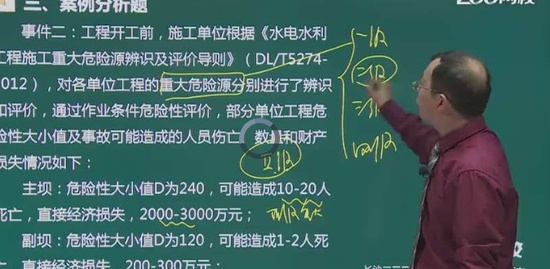 三、案例分析题
网校
事件二：工程开工前，施工单位根据《水电水利
工程施工重大危险源辨识及评价导则》（DL/T5274-
012），对各单位工程的重大危险源分别进行了辨识
和评价，通过作业条件危险性评价，部分单位工程危
险性大小值及事故可能造成的人员伤亡、数量和财产
损失情况如下：
主坝：危险性大小值D为240，可能造成10-20人
死亡，直接经济损失，2000-3000万元；
副坝：危险性大小值D为120，可能造成1-2人死
亡，直接经济损失，200-300万元；
一级
二级
三级
四级